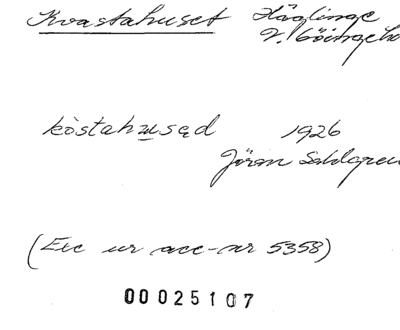 Kvastahuset Häglinge
V. Göinge
kòstahusəd 1926
Jöran Sahlgren
(Exc ur acc-nr 5358)
00025107